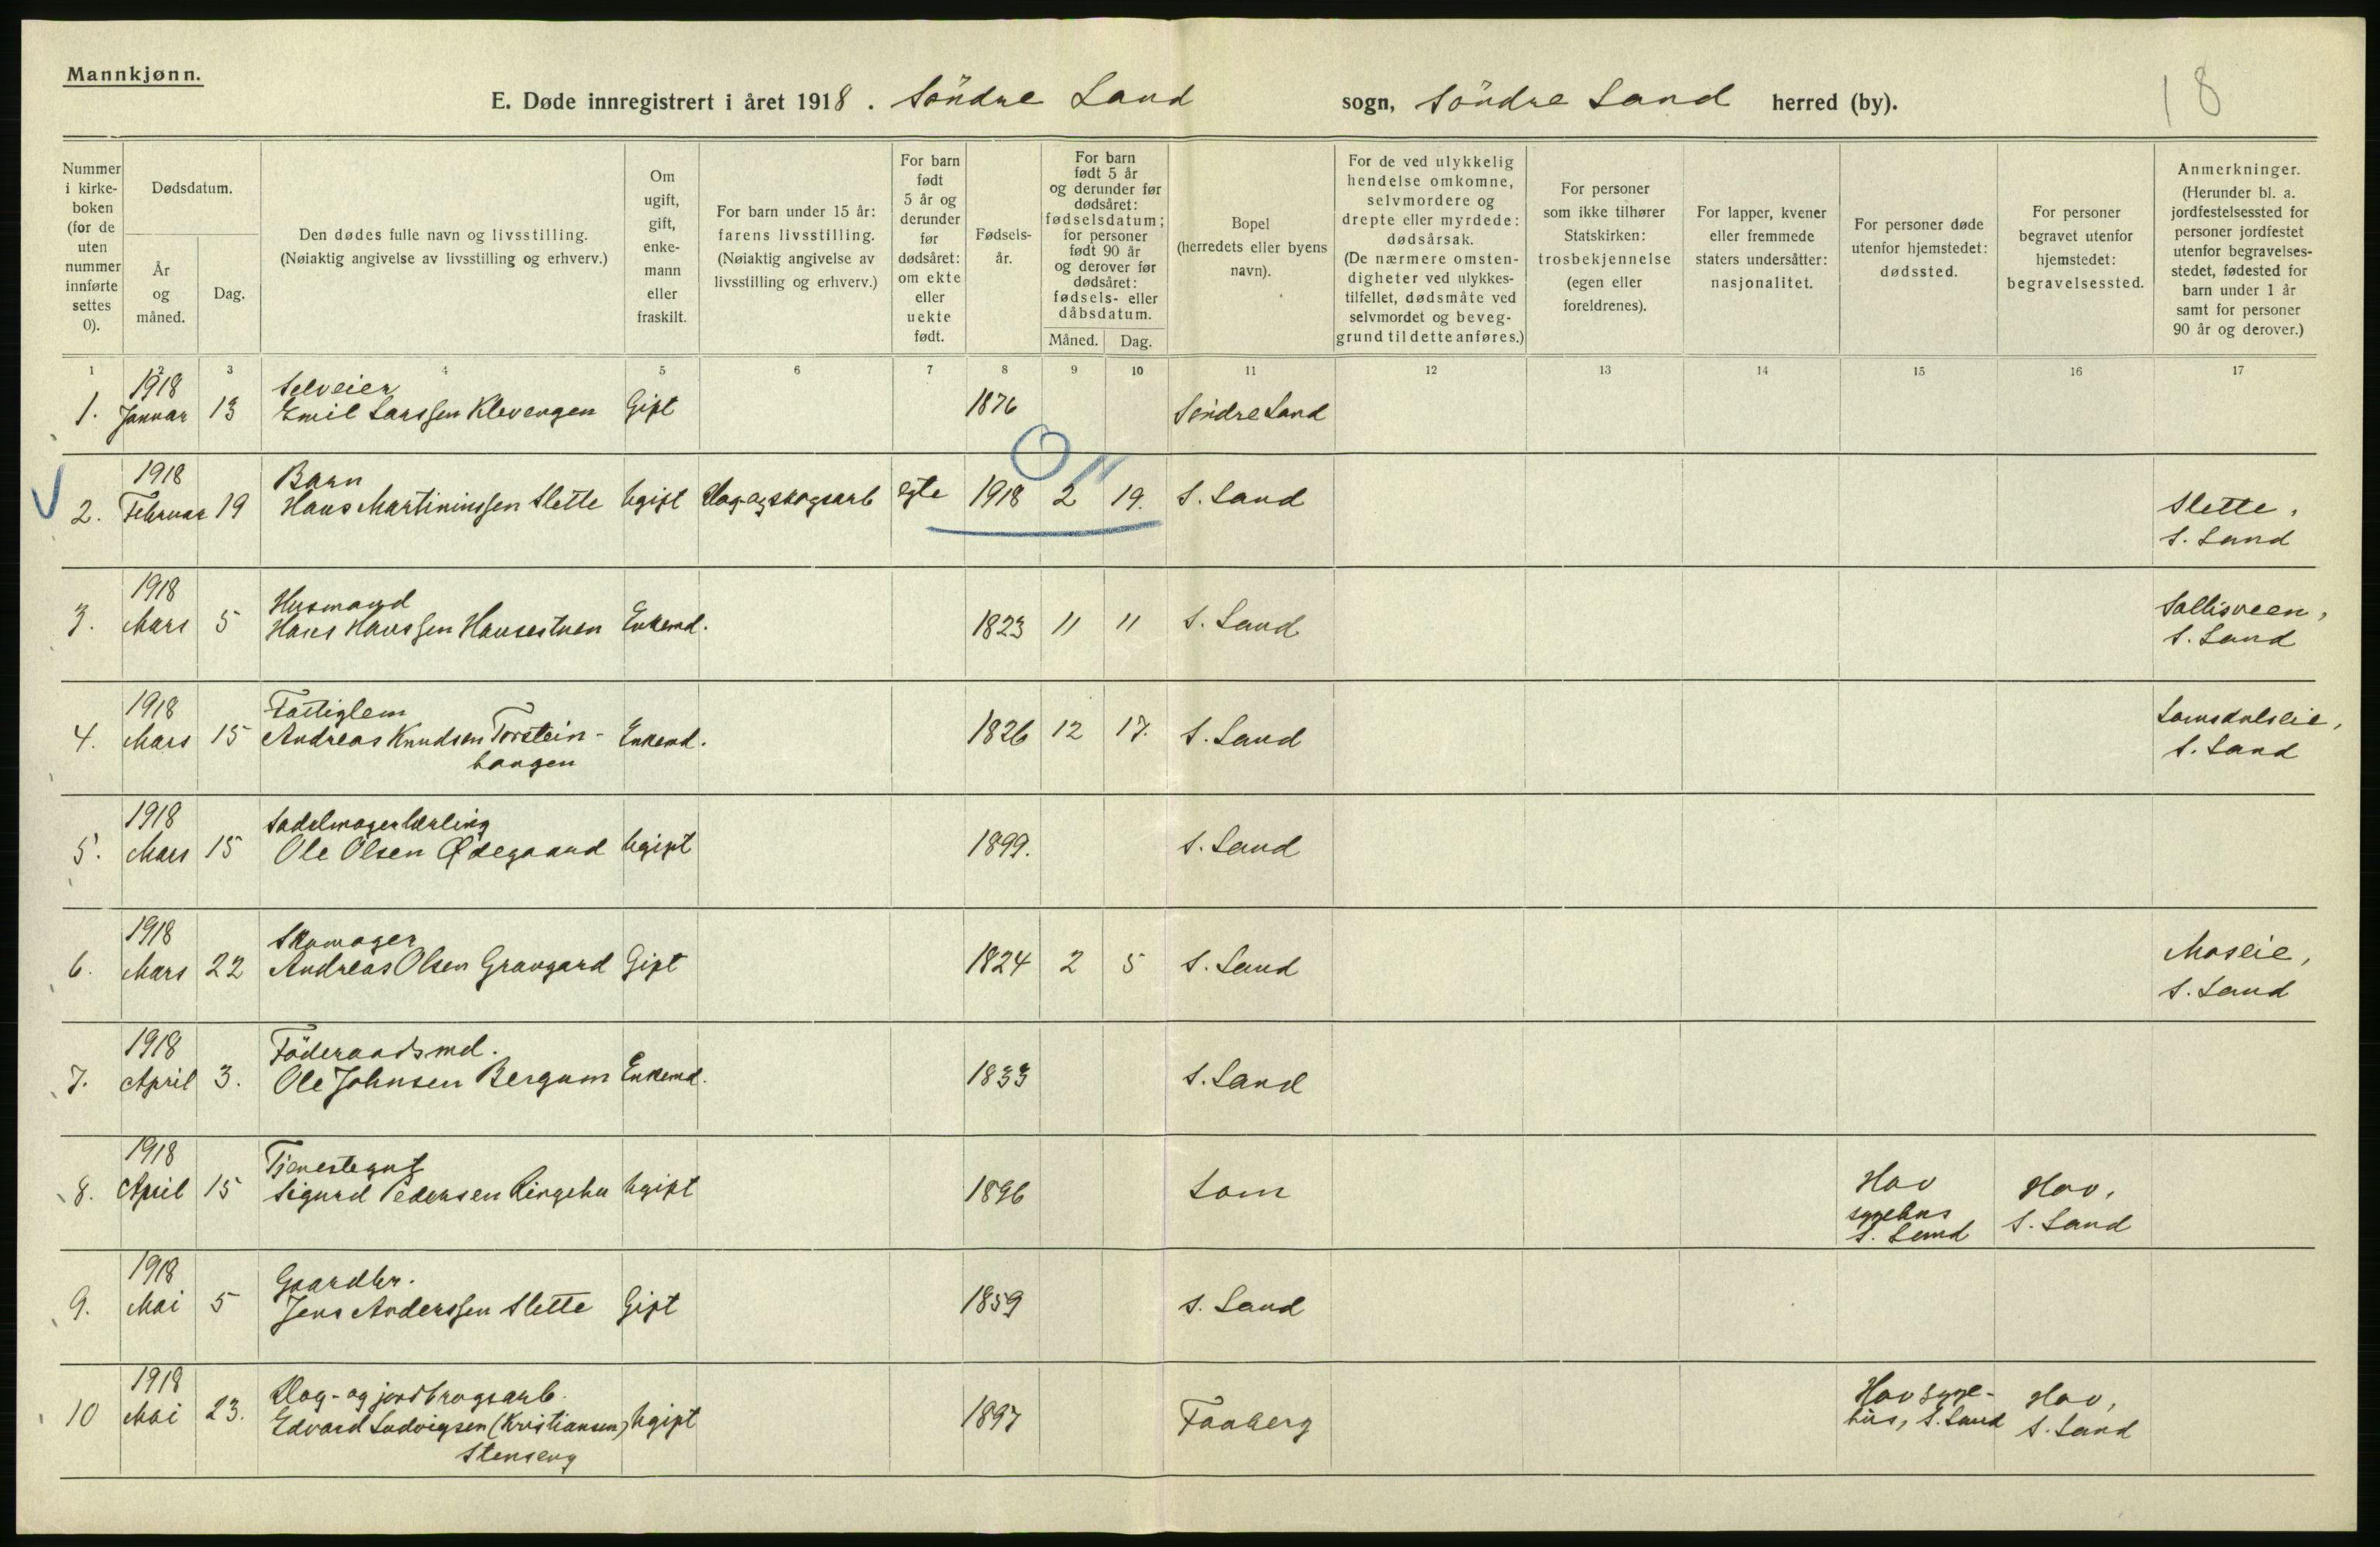 Mannkjønn.
18
E. Døde innregistrert i året 1918. Söndre Land sogn, Söndre Land herred (by).
Nummer i kirke-boken (for de uten nummer innførte settes 0).
Dødsdatum.
År og måned.
Dag.
Den dødes fulle navn og livsstilling.
(Nøiaktig angivelse av livsstilling og erhverv.)
Om ugift, gift, enke-mann eller fraskilt.
For barn under 15 år: farens livsstilling. (Nøiaktig angivelse av livsstilling og erhverv.)
For barn født 5 år og derunder før dødsåret: om ekte eller uekte født.
Fødsels-år.
For barn født 5 år og derunder før dødsåret: fødselsdatum; for personer født 90 år og derover før dødsåret: fødsels- eller dåbsdatum.
Måned. Dag.
Bopel (herredets eller byens navn).
For de ved ulykkelig hendelse omkomne, selvmordere og drepte eller myrdede: dødsårsak. (De nærmere omsten-digheter ved ulykkes-tilfellet, dødsmåte ved selvmordet og beveg-grund til dette anføres.)
For personer som ikke tilhører Statskirken: trosbekjennelse (egen eller foreldrenes).
For lapper, kvener eller fremmede staters undersåtter: nasjonalitet.
For personer døde utenfor hjemstedet: dødssted.
For personer begravet utenfor hjemstedet: begravelsessted.
Anmerkninger. (Herunder bl. a. jordfestelsessted for personer jordfestet utenfor begravelses-stedet, fødested for barn under 1 år samt for personer 90 år og derover.)
1 2 3 4 5 6 7 8 9 10 11 12 13 14 15 16 17
1918 Selveier
1. Januar 13 Emil Larssen Klevengen Gift 1876 Söndre Land
1918 Barn
2. Februar 19 Hans Martinussen Slette Ugift Dag-og skogsarb egte 1918 2 19. S. Land Slette,
S. Land
1918 Husmand
3. Mars 5 Hans Hanssen Hansestuen Enkemd. 1823 11 11 S. Land Sollisveen,
S. Land
1918 Fattiglem
4. Mars 15 Andreas Knudsen Torstein- Enkemd. 1826 12 17. S. Land Lomsdalseie,
haugen S. Land
1918 Sadelmagerlærling
5. Mars 15 Ole Olsen Ødegaard Ugift 1899. S. Land
1918 Skomager
6. Mars 22 Andreas Olsen Grangard Gift 1824 2 5 S. Land Moseie,
S. Land
1918 Föderaadsmd.
7. April 3. Ole Johnsen Bergum Enkemd. 1833 S. Land
1918 Tjenestegut
8. April 15 Sigurd Pedersen Ringebu Ugift 1896 Lom Hov sygehus S. Land Hov, S. Land
1918 Gaardbr.
9. Mai 5 Jens Anderssen Slette Gift 1859 S. Land
1918 Dag- og jordbrugsarb.
10 Mai 23. Edvard Ludvigsen (Kristiansen) Ugift 1897 Faaberg Hov syge-hus, S. Land Hov, S. Land
Stenseng